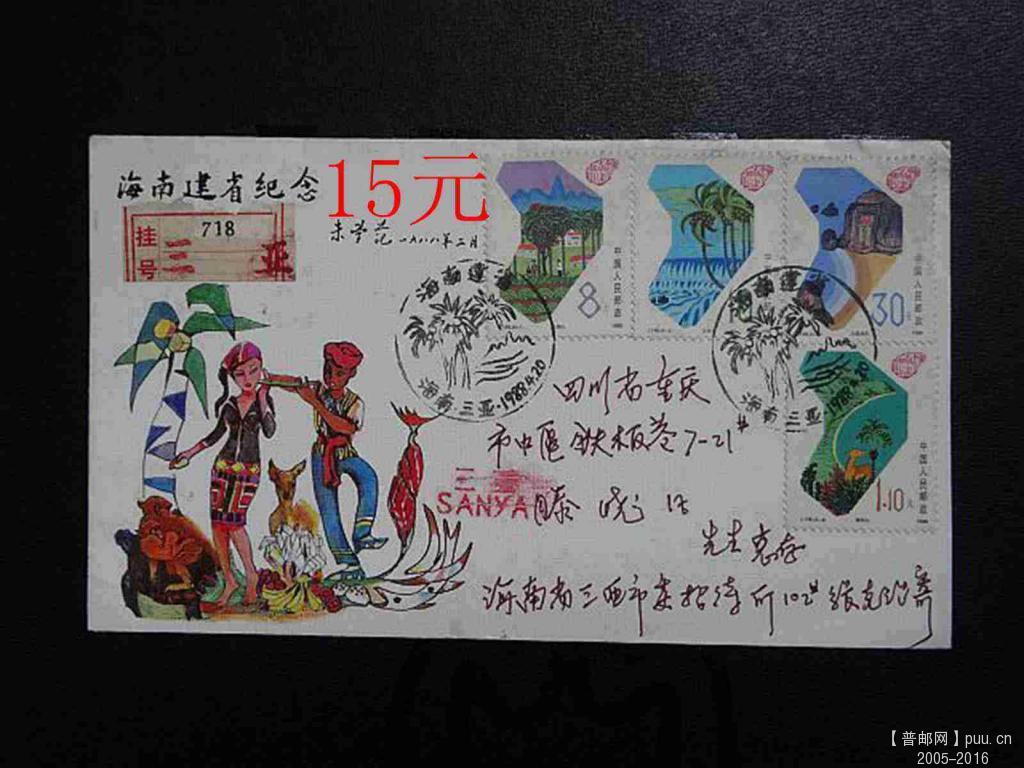 海南建省纪念
15元
718
挂号
三亚
一九八八年二月
中国人民邮政
8
中国人民邮政
30
海南 三亚·1988.4.20
海南 三亚·1988.4.20
中国人民邮政
1.10
四川省重庆
市中区铁板巷7-21#
三亚
SANYA
滕
先生惠存
海南省三亚市委招待所102#
寄
【普邮网】puu.cn
2005-2016